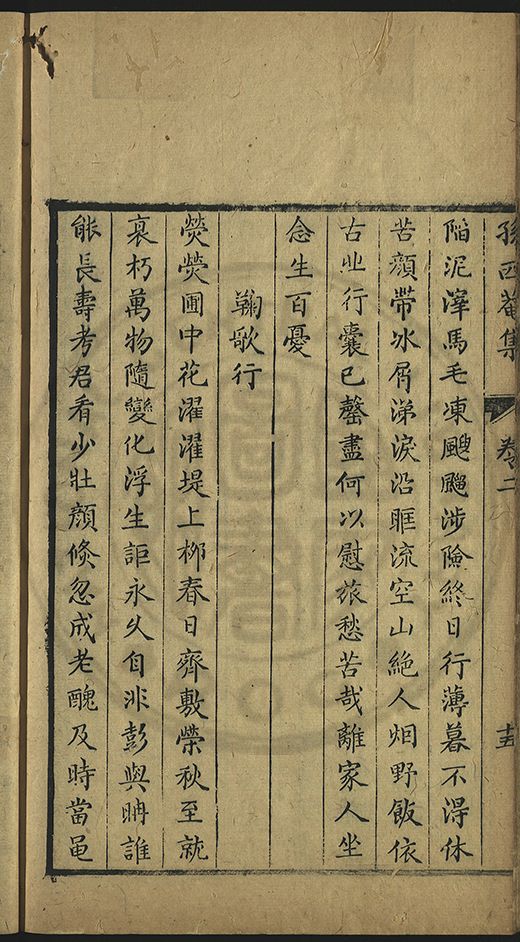 孫西菴集 卷二 十五
陷泥滓馬毛凍颼飀涉險終日行薄暮不得休
苦顏帶冰屑涕淚沿眶流空山絶人烟野飯依
古丠行囊已罄盡何以慰旅愁苦哉離家人坐
念生百憂
鞠歌行
熒熒圃中花濯濯堤上栁春日齊敷榮秋至就
衰朽萬物隨變化浮生詎永乆自非彭與聃誰
能長壽考君看少壯顏倐忽成老醜及時當黽